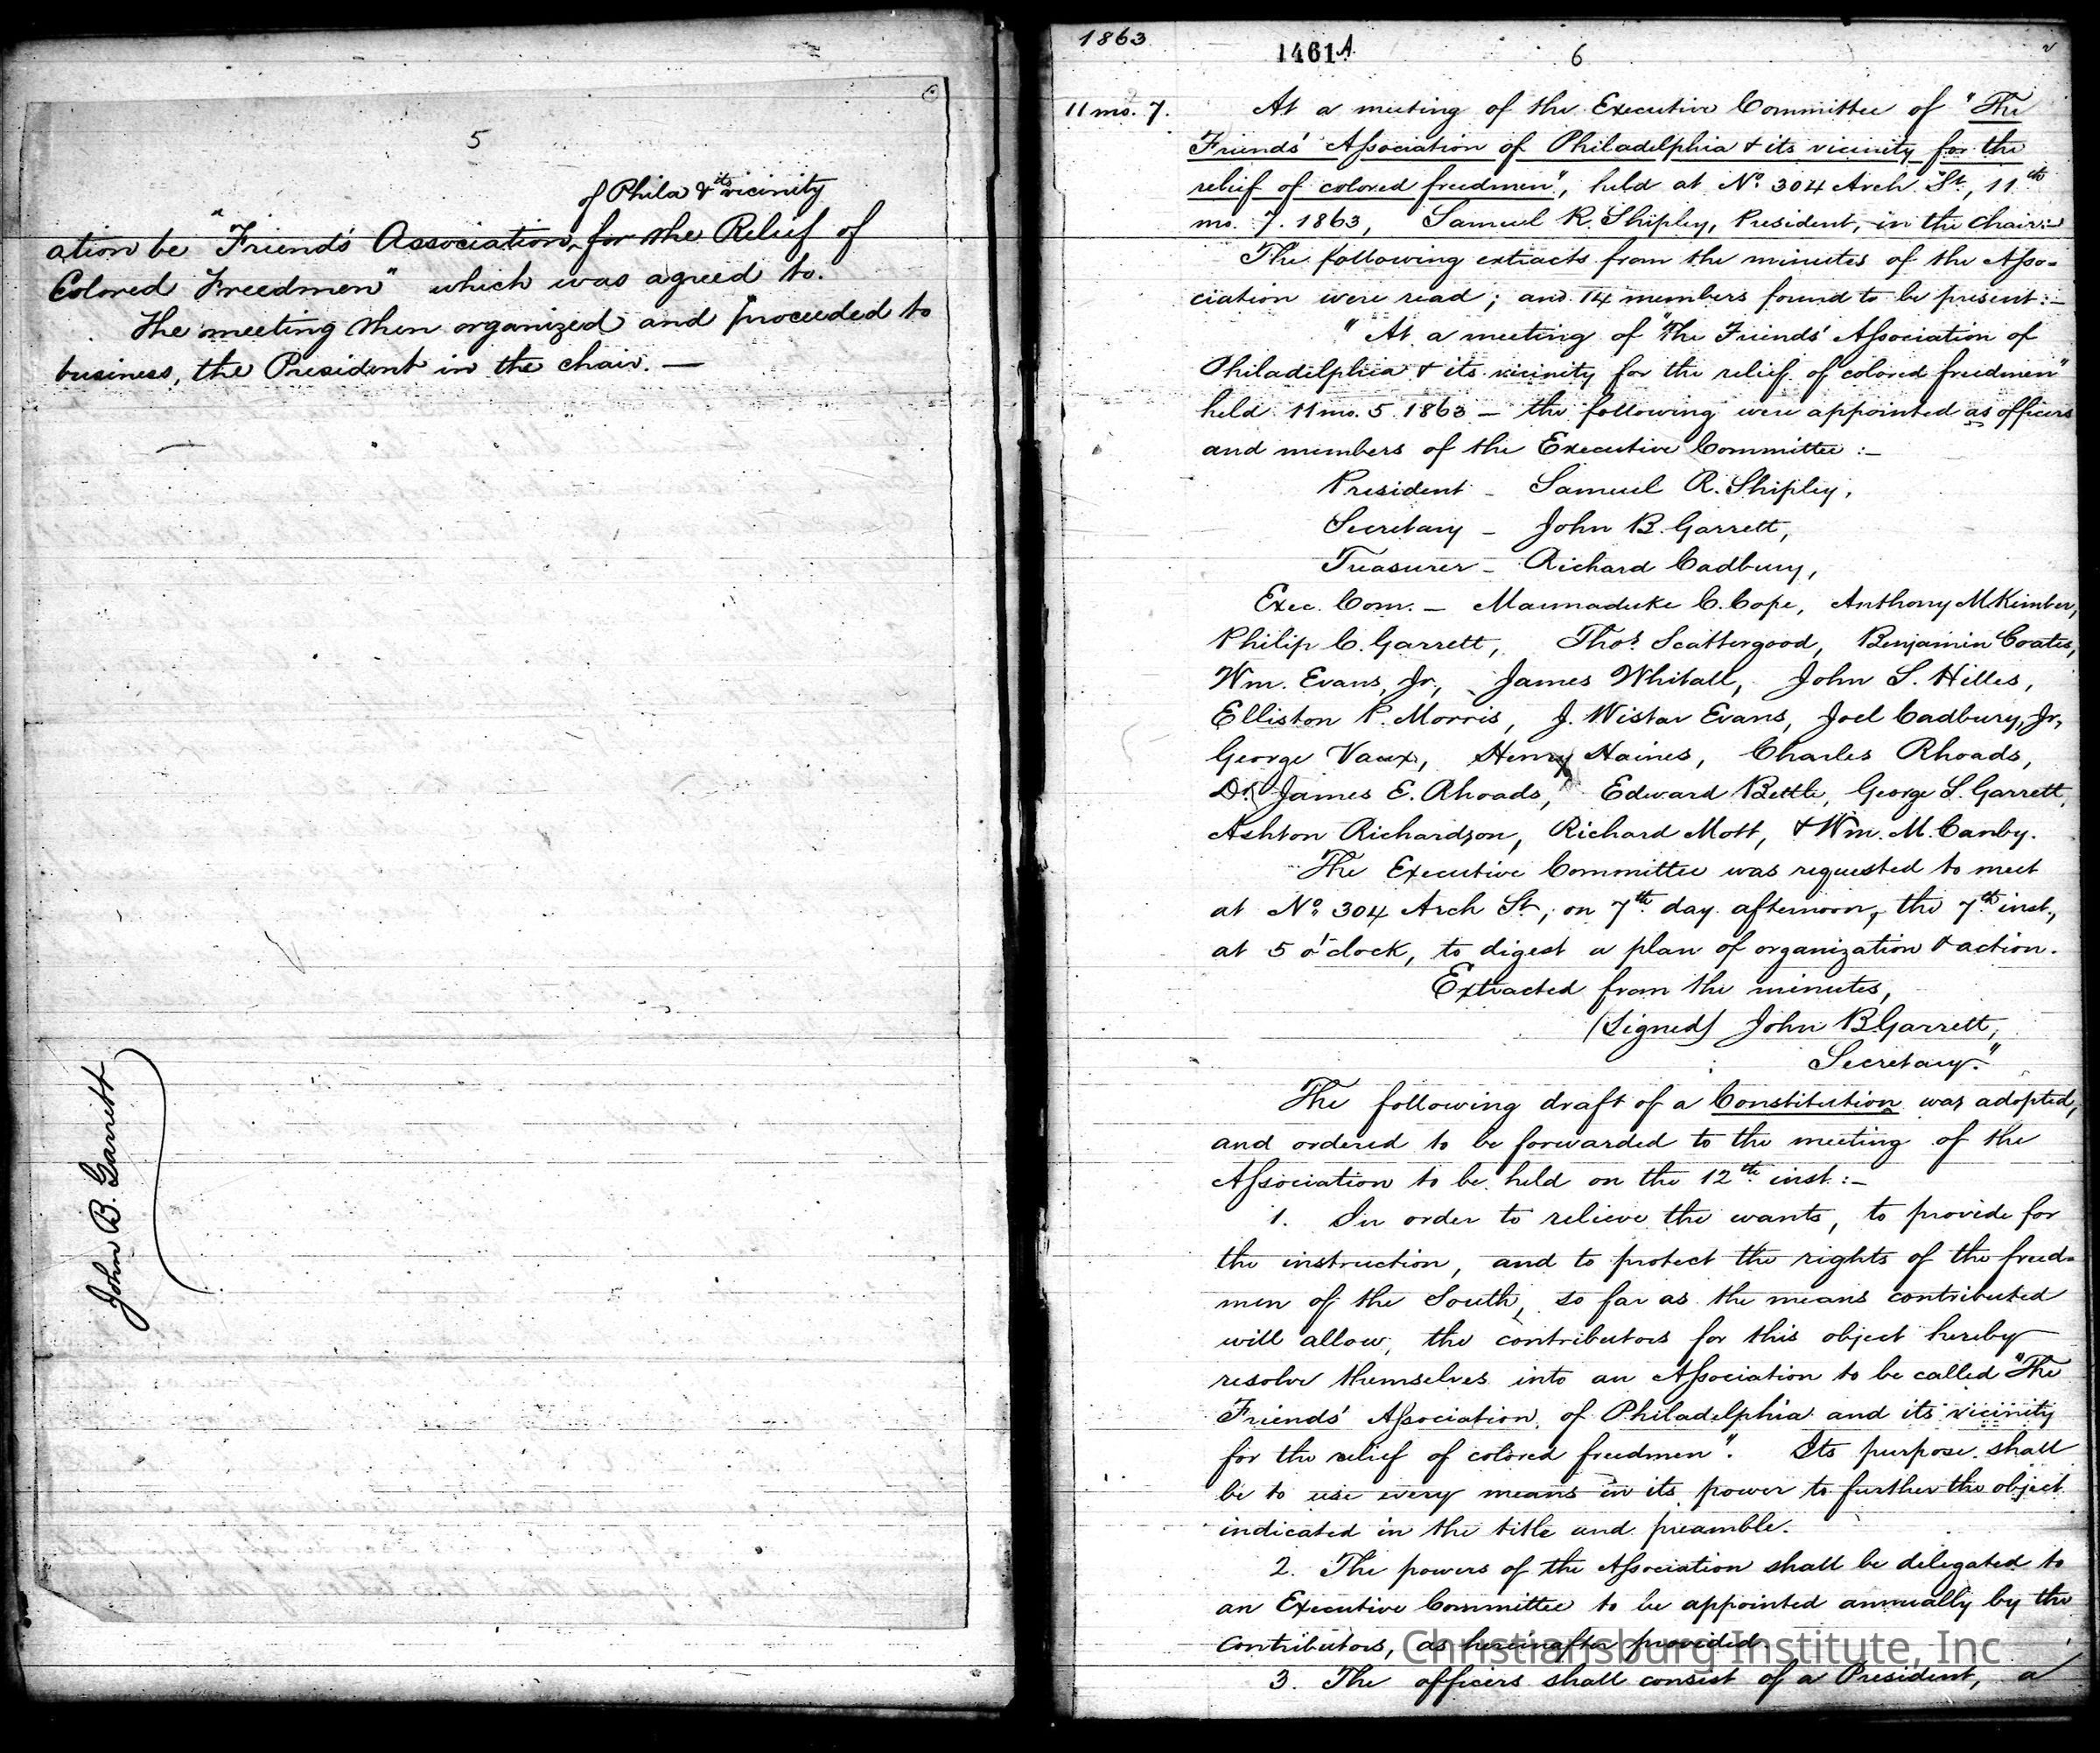 5
of Phila & its vicinity
ation be "Friends Association, for the Relief of
Colored Freedmen" which was agreed to.
The meeting then organized and proceeded to
business, the President in the chair. —
John B. Garrett
1863
1461A
6
11 mo. 7.
At a meeting of the Executive Committee of "The
Friends' Association of Philadelphia & its vicinity for the
relief of colored freedmen", held at No. 304 Arch St., 11th
mo. 7. 1863, Samuel R. Shipley, President, in the chair:—
The following extracts from the minutes of the Asso-
ciation were read; and 14 members found to be present:—
"At a meeting of "The Friends' Association of
Philadelphia & its vicinity for the relief of colored freedmen"
held 11 mo. 5. 1863 — the following were appointed as officers
and members of the Executive Committee:—
President – Samuel R. Shipley,
Secretary – John B. Garrett,
Treasurer – Richard Cadbury,
Exec. Com. – Marmaduke C. Cope, Anthony M Kimber,
Philip C. Garrett, Thos. Scattergood, Benjamin Coates,
Wm. Evans, Jr., James Whitall, John S. Hilles,
Elliston P. Morris, J. Wistar Evans, Joel Cadbury, Jr.,
George Vaux, Henry Haines, Charles Rhoads,
Dr. James E. Rhoads, Edward Bettle, George S. Garrett,
Ashton Richardson, Richard Mott, & Wm. M. Canby.
The Executive Committee was requested to meet
at No. 304 Arch St., on 7th day afternoon, the 7th inst.,
at 5 o'clock, to digest a plan of organization & action.
Extracted from the minutes,
(Signed) John B. Garrett,
Secretary."
The following draft of a Constitution was adopted,
and ordered to be forwarded to the meeting of the
Association to be held on the 12th inst:—
1. In order to relieve the wants, to provide for
the instruction, and to protect the rights of the freed-
men of the South, so far as the means contributed
will allow, the contributors for this object hereby
resolve themselves into an Association to be called "The
Friends' Association of Philadelphia and its vicinity
for the relief of colored freedmen". Its purpose shall
be to use every means in its power to further the object
indicated in the title and preamble.
2. The powers of the Association shall be delegated to
an Executive Committee to be appointed annually by the
contributors, as hereinafter provided.
Christiansburg Institute, Inc
3. The officers shall consist of a President, a